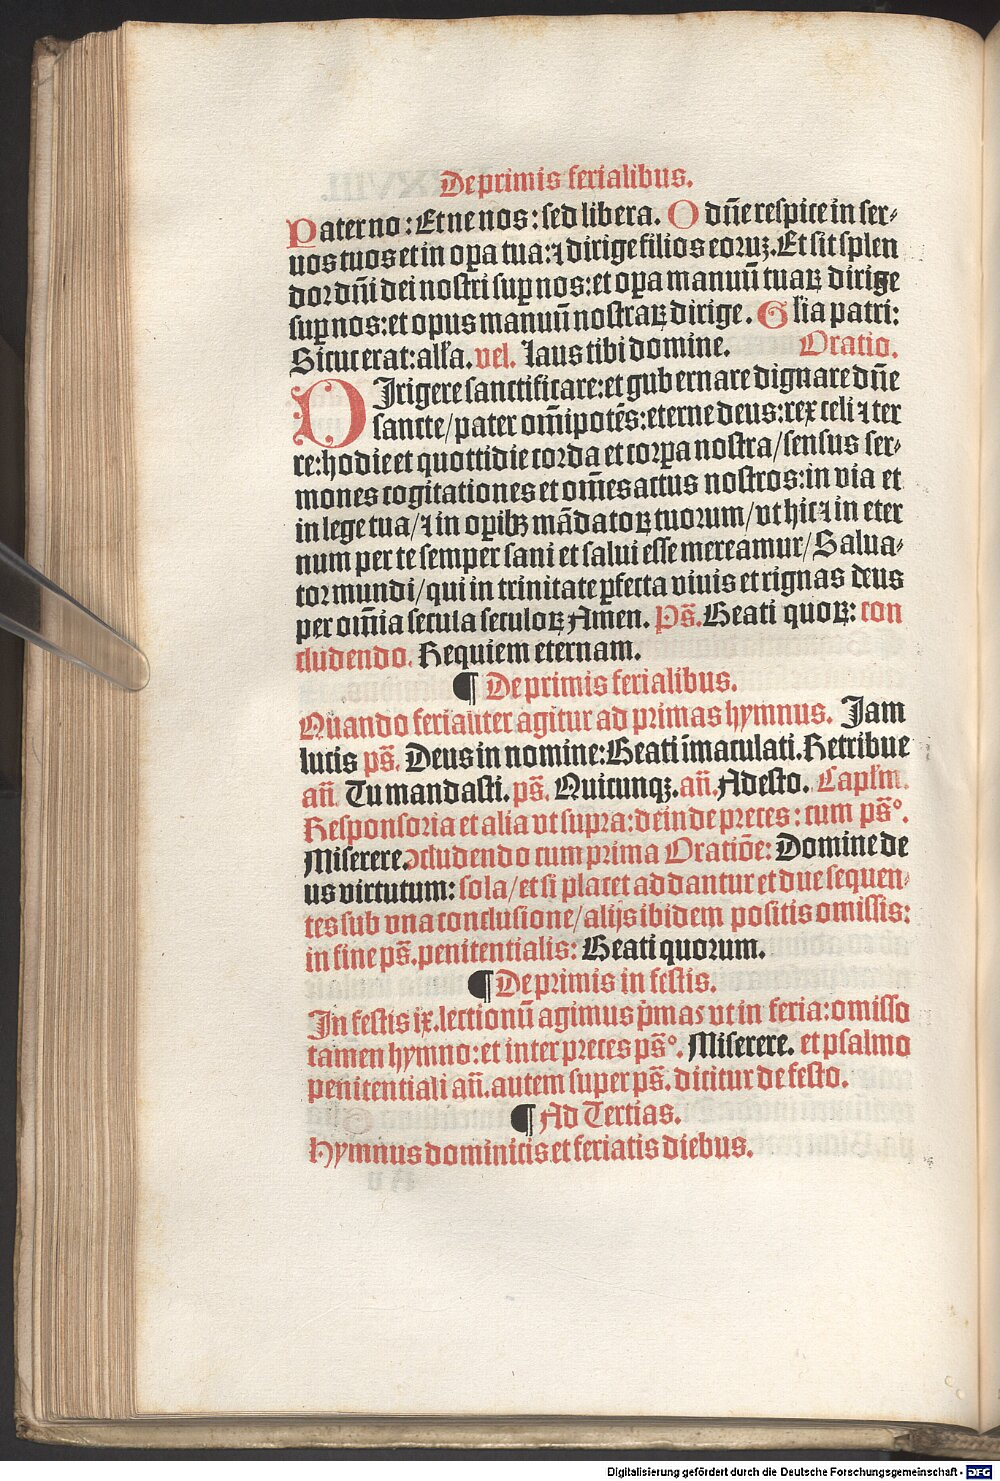 De primis ferialibus.
Pater no: Et ne nos: sed libera. O dñe respice in ser-
uos tuos et in oꝑa tua: ⁊ dirige filios eoruꝫ. Et sit splen
dor dñi dei nostri suꝑ nos: et oꝑa manuū tuaꝝ dirige
suꝑ nos: et opus manuū nostraꝝ dirige. Glia patri:
Sicut erat: alła. vel. Laus tibi domine. Oratio.
DIrigere sanctificare: et gubernare dignare dñe
sancte/pater om̄ipotēs: eterne deus: rex celi ⁊ ter
re: hodie et quottidie corda et corꝑa nostra/sensus ser-
mones cogitationes et om̄es actus nostros: in via et
in lege tua/⁊ in oꝑibꝫ mādatoꝝ tuorum/vt hic ⁊ in eter
num per te semper sani et salui esse mereamur/Salua-
tor mundi/qui in trinitate ꝑfecta viuis et rignas deus
per om̄ia secula seculoꝝ Amen. Ps̄. Beati quoꝝ: con
cludendo. Requiem eternam.
¶ De primis ferialibus.
Quando ferialiter agitur ad primas hymnus. Iam
lucis ps̄. Deus in nomine: Beati īmaculati. Retribue
añ. Tu mandasti. ps̄. Quicunqꝫ. añ. Adesto. Capl̄m.
Responsoria et alia vt supra: deinde preces: cum ps̄º.
Miserere. ꝯcludendo cum prima Oratiōe: Domine de
us virtutum: sola/et si placet addantur et due sequen-
tes sub vna conclusione/alijs ibidem positis omissis:
in fine ps̄. penitentialis: Beati quorum.
¶ De primis in festis.
In festis ix. lectionū agimus p̄mas vt in feria: omisso
tamen hymno: et inter preces ps̄º. Miserere. et psalmo
penitentiali añ. autem super ps̄. dicitur de festo.
¶ Ad Tertias.
Hymnus dominicis et feriatis diebus.
Digitalisierung gefördert durch die Deutsche Forschungsgemeinschaft - DFG